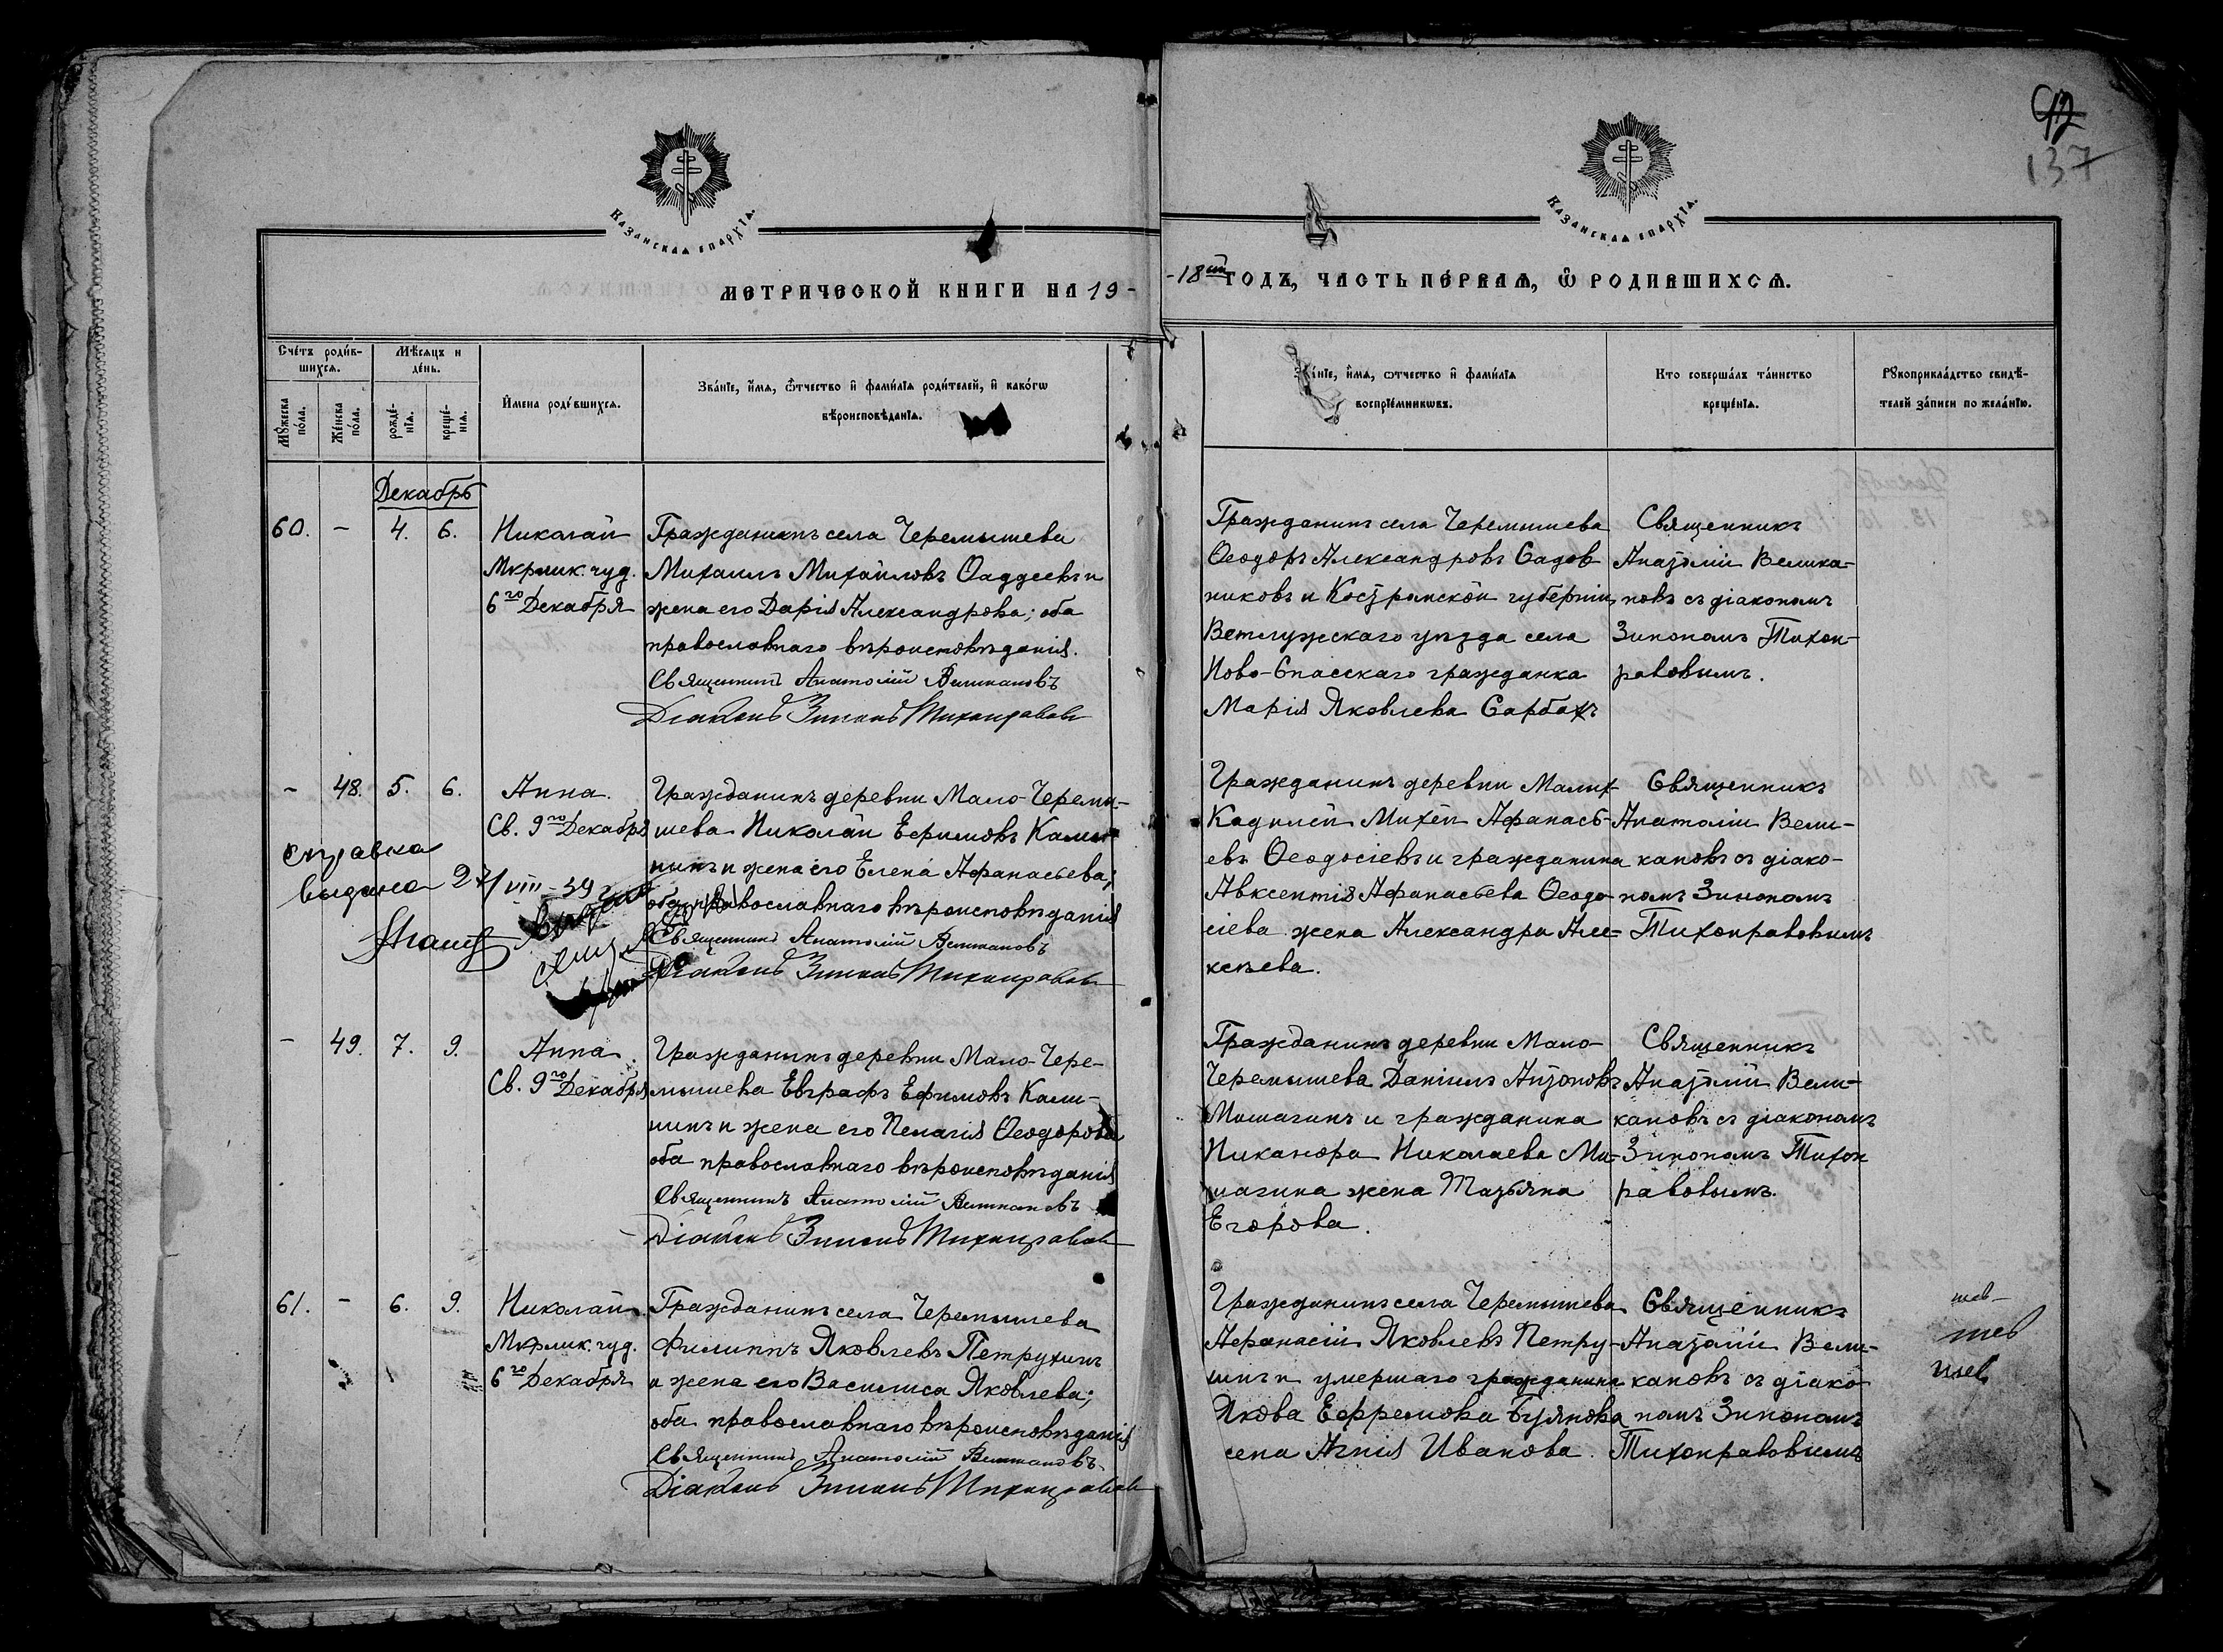 92
137
Казанская епархїа.
Казанская епархїа.
МЕТРИЧЕСКОЙ КНИГИ НА 19-
-18ый ГОДЪ, ЧАСТЬ ПЕРВАЯ, Ѿ РОДИВШИХСЯ.
Счётъ родив-
шихся.
Мѣсяцъ и
день.
Мужеска
пола.
Женска
пола.
рожде-
нїя.
креще-
нїя.
Имена родившихся.
Званїе, имя, ѿтчество и фамилїя родителей, и какогѡ
вѣроисповѣданїя.
имя, ѿтчество и фамилїя
воспрїемникѡвъ.
Кто совершалъ таинство
крещенїя.
Рукоприкладство свидѣ-
телей записи по желанїю.
Декабрь
60. - 4. 6.
Николай
Мѵрлик. чуд.
6го Декабря
Гражданинъ села Черемышева
Михаилъ Михайловъ Ѳаддеевъ и
жена его Дарія Александрова; оба
православнаго вѣроисповѣданія.
Священникъ Анатолій Великановъ
Діаконъ Зинонъ Тихонравовъ
Гражданинъ села Черемышева
Ѳеодоръ Александровъ Садов
никовъ и Костромской губерніи,
Ветлужскаго уѣзда села
Ново-Спасскаго гражданка
Марія Яковлева Сарбахъ
Священникъ
Анатолій Велика-
новъ съ діакономъ
Зинономъ Тихон-
равовымъ.
- 48. 5. 6.
Анна.
Св. 9го Декабря
Гражданинъ деревни Мало-Черемы-
шева Николай Ефимовъ Кали-
нинъ и жена его Елена Афанасьева;
оба православнаго вѣроисповѣданія
Священникъ Анатолій Великановъ
Діаконъ Зинонъ Тихонравовъ
справка
выдана 27/VIII-39
Гражданинъ деревни Малых
Кадилей Михей Афанась-
евъ Ѳеодосіевъ и гражданина
Авксентія Афанасьева Ѳеодо-
сіева жена Александра Але-
ксѣева.
Священникъ
Анатолій Вели-
кановъ съ діако-
номъ Зинономъ
Тихонравовымъ
- 49. 7. 9.
Анна.
Св. 9го Декабря
Гражданинъ деревни Мало-Чере-
мышева Евграфъ Ефимовъ Кали-
нинъ и жена его Пелагія Ѳеодорова
оба православнаго вѣроисповѣданія
Священникъ Анатолій Великановъ
Діаконъ Зинонъ Тихонравовъ
Гражданинъ деревни Мало-
Черемышева Даніилъ Антоновъ
Мишагинъ и гражданина
Никанора Николаева Ми-
шагина жена Татьяна
Егорова.
Священникъ
Анатолій Вели-
кановъ съ діакономъ
Зинономъ Тихон
равовымъ.
61. - 6. 9.
Николай.
Мѵрлик. чуд.
6го Декабря
Гражданинъ села Черемышева
Филиппъ Яковлевъ Петрухинъ
и жена его Василиса Яковлева;
оба православнаго вѣроисповѣданія
Священникъ Анатолій Великановъ
Діаконъ Зинонъ Тихонравовъ
Гражданинъ села Черемышева
Афанасій Яковлевъ Петру-
шинъ и умершаго гражданина
Якова Ефремова Буянова
Агнія Иванова.
Священникъ
Анатолій Вели-
кановъ съ діако
номъ Зинономъ
Тихонравовымъ